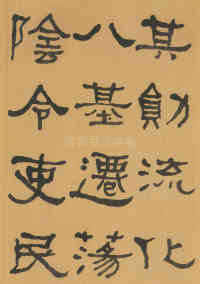 其勛流化
八基遷蕩
陰令吏民